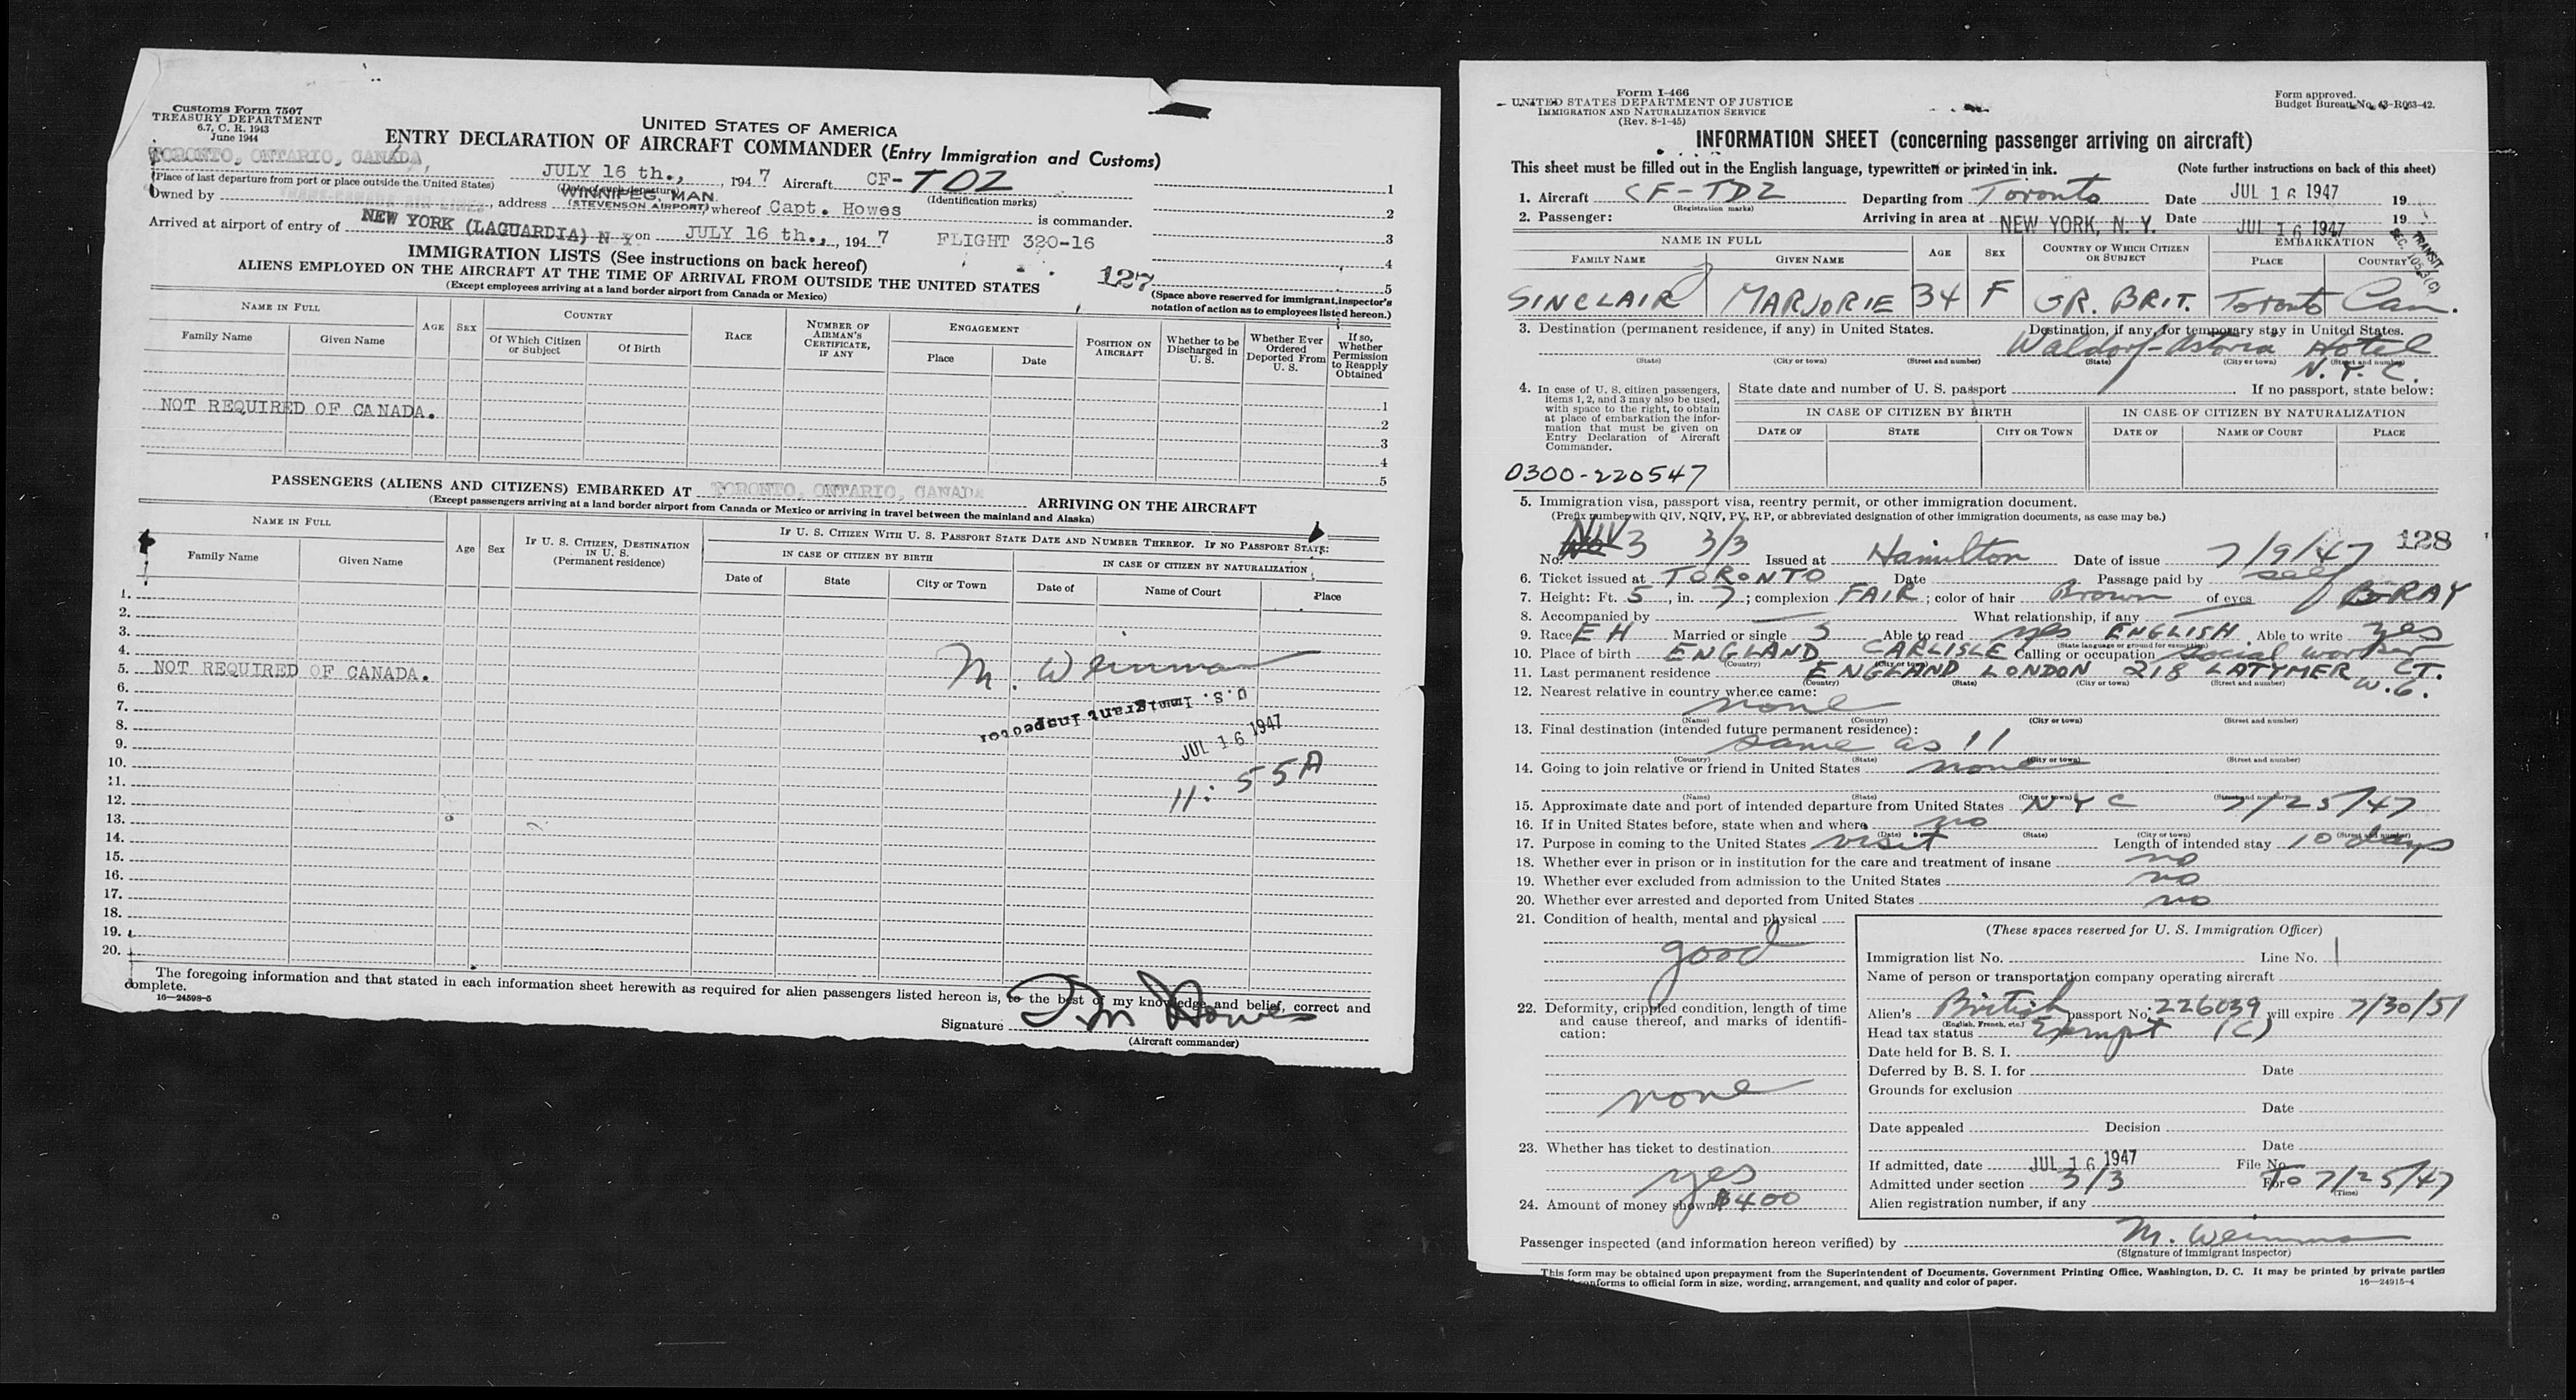 Customs Form 7507
TREASURY DEPARTMENT
6.7, C. R. 1943
June 1944
UNITED STATES OF AMERICA
ENTRY DECLARATION OF AIRCRAFT COMMANDER (Entry Immigration and Customs)
TORONTO, ONTARIO, CANADA, JULY 16 th., , 194 7 Aircraft CF-TDZ 1
(Place of last departure from port or place outside the United States) (Date of such departure) (Identification marks)
WINNIPEG, MAN.
Owned by , address (STEVENSON AIRPORT), whereof Capt. Howes is commander. 2
Arrived at airport of entry of NEW YORK (LAGUARDIA) N Y on JULY 16 th., , 194 7 FLIGHT 320-16 3
4
IMMIGRATION LISTS (See instructions on back hereof)
ALIENS EMPLOYED ON THE AIRCRAFT AT THE TIME OF ARRIVAL FROM OUTSIDE THE UNITED STATES 127 5
(Except employees arriving at a land border airport from Canada or Mexico)
(Space above reserved for immigrant inspector's notation of action as to employees listed hereon.)
NAME IN FULL AGE SEX COUNTRY RACE NUMBER OF AIRMAN'S CERTIFICATE, IF ANY ENGAGEMENT POSITION ON AIRCRAFT Whether to be Discharged in U. S. Whether Ever Ordered Deported From U. S. If so, Whether Permission to Reapply Obtained
Family Name Given Name Of Which Citizen or Subject Of Birth Place Date
NOT REQUIRED OF CANADA. 1
2
3
4
5
PASSENGERS (ALIENS AND CITIZENS) EMBARKED AT TORONTO, ONTARIO, CANADA ARRIVING ON THE AIRCRAFT
(Except passengers arriving at a land border airport from Canada or Mexico or arriving in travel between the mainland and Alaska)
NAME IN FULL Age Sex IF U. S. CITIZEN, DESTINATION IN U. S. (Permanent residence) IF U. S. CITIZEN WITH U. S. PASSPORT STATE DATE AND NUMBER THEREOF. IF NO PASSPORT STATE:
Family Name Given Name IN CASE OF CITIZEN BY BIRTH IN CASE OF CITIZEN BY NATURALIZATION
Date of State City or Town Date of Name of Court Place
1.
2.
3.
4.
5. NOT REQUIRED OF CANADA. M. Weinman
6.
7. U.S. Immigrant Inspector
8.
9. JUL 16 1947
10.
11. 11:55A
12.
13.
14.
15.
16.
17.
18.
19.
20.
The foregoing information and that stated in each information sheet herewith as required for alien passengers listed hereon is, to the best of my knowledge and belief, correct and
complete.
16—24598-5
Signature Howes
(Aircraft commander)
Form I-466
UNITED STATES DEPARTMENT OF JUSTICE
IMMIGRATION AND NATURALIZATION SERVICE
(Rev. 8-1-45)
Form approved.
Budget Bureau No. 43-R063-42.
INFORMATION SHEET (concerning passenger arriving on aircraft)
This sheet must be filled out in the English language, typewritten or printed in ink. (Note further instructions on back of this sheet)
1. Aircraft CF-TDZ Departing from Toronto Date JUL 16 1947 19
(Registration marks)
2. Passenger: Arriving in area at NEW YORK, N. Y. Date JUL 16 1947 19
TRANSIT
NAME IN FULL AGE SEX COUNTRY OF WHICH CITIZEN OR SUBJECT EMBARKATION
FAMILY NAME GIVEN NAME PLACE COUNTRY
SINCLAIR MARJORIE 34 F GR. BRIT. Toronto Can.
3. Destination (permanent residence, if any) in United States. Destination, if any, for temporary stay in United States.
Waldorf-Astoria Hotel
(State) (City or town) (Street and number) (State) (City or town) (Street and number)
N. Y. C.
4. In case of U. S. citizen passengers, items 1, 2, and 3 may also be used, with space to the right, to obtain at place of embarkation the information that must be given on Entry Declaration of Aircraft Commander.
State date and number of U. S. passport If no passport, state below:
IN CASE OF CITIZEN BY BIRTH IN CASE OF CITIZEN BY NATURALIZATION
DATE OF STATE CITY OR TOWN DATE OF NAME OF COURT PLACE
0300-220547
5. Immigration visa, passport visa, reentry permit, or other immigration document.
(Prefix number with QIV, NQIV, PV, RP, or abbreviated designation of other immigration documents, as case may be.)
128
No. NIV 3 3/3 Issued at Hamilton Date of issue 7/9/47
6. Ticket issued at TORONTO Date Passage paid by self
7. Height: Ft. 5, in. 7; complexion FAIR; color of hair Brown of eyes GRAY
8. Accompanied by What relationship, if any
9. Race EH Married or single S Able to read yes ENGLISH Able to write yes
(State language or ground for exemption)
10. Place of birth ENGLAND CARLISLE Calling or occupation social worker
(Country) (City or town)
11. Last permanent residence ENGLAND LONDON 218 LATYMER CT. W.6.
(Country) (State) (City or town) (Street and number)
12. Nearest relative in country whence came:
none
(Name) (Country) (City or town) (Street and number)
13. Final destination (intended future permanent residence):
same as 11
(Country) (State) (City or town) (Street and number)
14. Going to join relative or friend in United States none
(Name) (State) (City or town) (Street and number)
15. Approximate date and port of intended departure from United States NYC 7/25/47
16. If in United States before, state when and where no
(Date) (State) (City or town) (Street and number)
17. Purpose in coming to the United States visit Length of intended stay 10 days
18. Whether ever in prison or in institution for the care and treatment of insane no
19. Whether ever excluded from admission to the United States no
20. Whether ever arrested and deported from United States no
21. Condition of health, mental and physical
good
22. Deformity, crippled condition, length of time and cause thereof, and marks of identification:
none
23. Whether has ticket to destination
yes
24. Amount of money shown $400
(These spaces reserved for U. S. Immigration Officer)
Immigration list No. Line No. 1
Name of person or transportation company operating aircraft
Alien's British passport No. 226039 will expire 7/30/51
(English, French, etc.)
Head tax status Exempt (C)
Date held for B. S. I.
Deferred by B. S. I. for Date
Grounds for exclusion
Date
Date appealed Decision
Date
If admitted, date JUL 16 1947 File No.
Admitted under section 3/3 For To 7/25/47
(Time)
Alien registration number, if any
Passenger inspected (and information hereon verified) by M. Weinman
(Signature of immigrant inspector)
This form may be obtained upon prepayment from the Superintendent of Documents, Government Printing Office, Washington, D. C. It may be printed by private parties
conforms to official form in size, wording, arrangement, and quality and color of paper.
16—24915-4